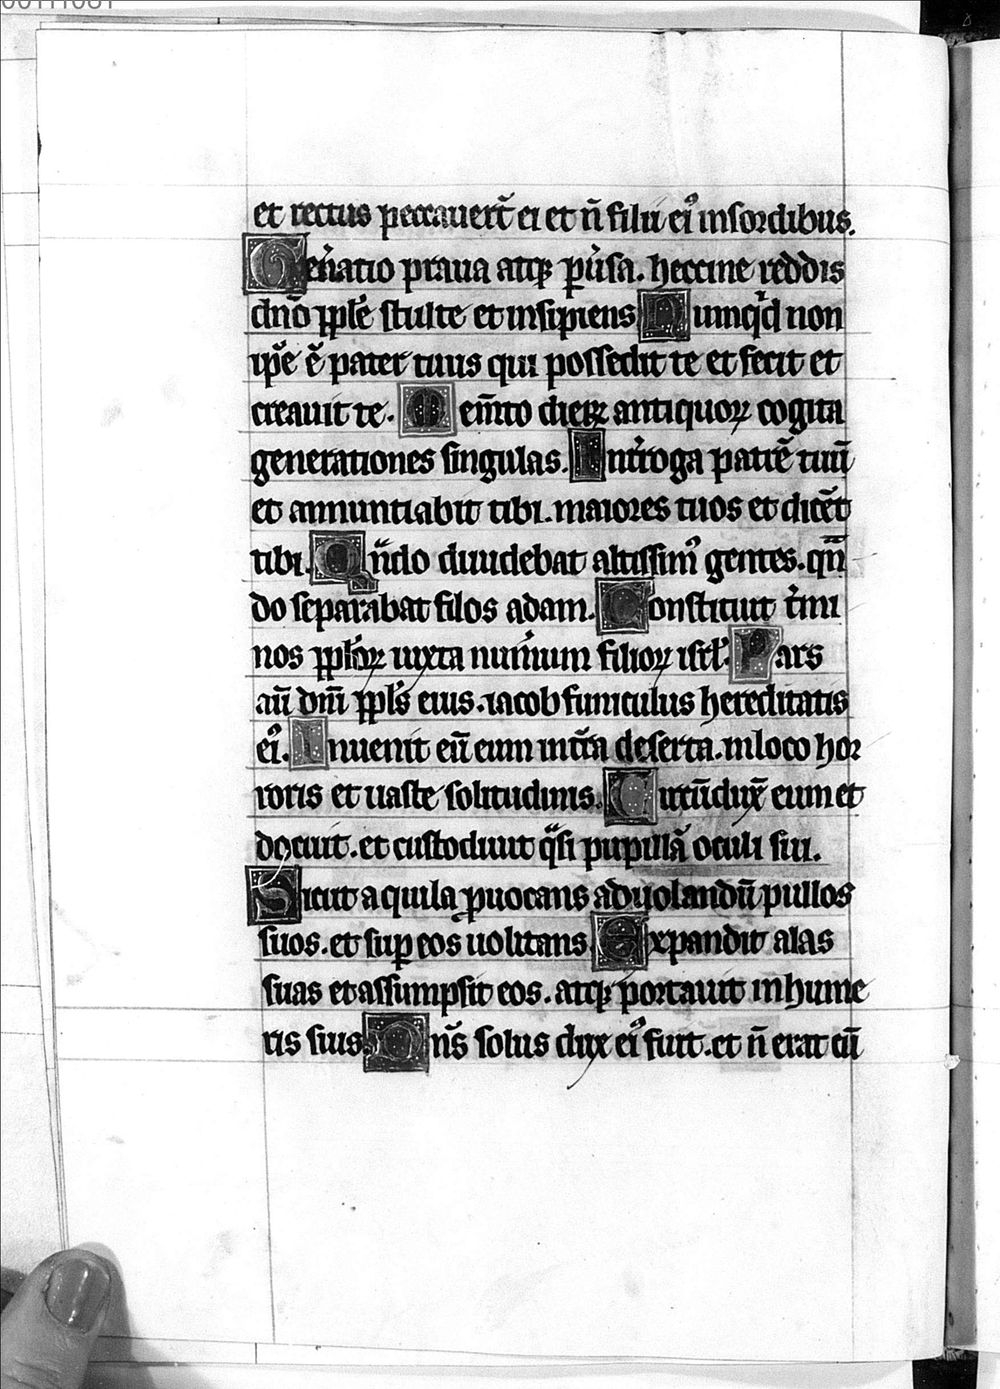 et rectus peccauert̄ ei et n̄ filii ei᷒ in sordibus.
Gen̄atio praua atqꝫ ꝑu̓sa. heccine reddis
dn̄o pp̄le stulte et insipiens Numqͥd non
ip̄e ē pater tuus qui possedit te et fecit et
creauit te. Mem̄to dieꝝ antiquoꝝ cogita
generationes singulas. Int̓roga patrē tuū
et annuntiabit tibi. maiores tuos et dicēt
tibi. Qᷓndo diuidebat altissim᷒ gentes. qᷓn
do separabat filos adam. Constituit t̓mi
nos pp̄loꝝ iuxta num̓um filioꝝ isrl̄. Pars
aū dn̄i pp̄ls eius. iacob funiculus hereditatis
ei᷒. Inuenit eū eum in tr̄a deserta. in loco hor
roris et uaste solitudinis. Circūdux̄ eum et
docuit. et custodiuit qᷓsi pupillā oculi sui.
Sicut aquila ꝓuocans ad uolandū pullos
suos. et suꝑ eos uolitans. Expandit alas
suas et assumpsit eos. atqꝫ portauit in hume
ris suis. Dn̄s solus dux ei᷒ fuit. et n̄ erat cū